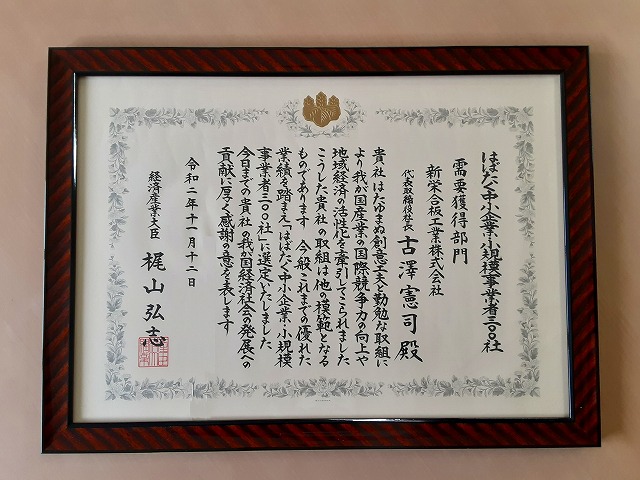 はばたく中小企業・小規模事業者三〇〇社
需要獲得部門
新栄合板工業株式会社
代表取締役社長 古澤憲司殿
貴社はたゆまぬ創意工夫と勤勉な取組に
より我が国産業の国際競争力の向上や
地域経済の活性化を牽引してこられました
こうした貴社の取組は他の模範となる
ものであります 今般これまでの優れた
業績を踏まえ「はばたく中小企業・小規模
事業者三〇〇社」に選定いたしました
今日までの貴社の我が国経済社会の発展への
貢献に厚く感謝の意を表します
令和二年十一月十二日
経済産業大臣 梶山弘志